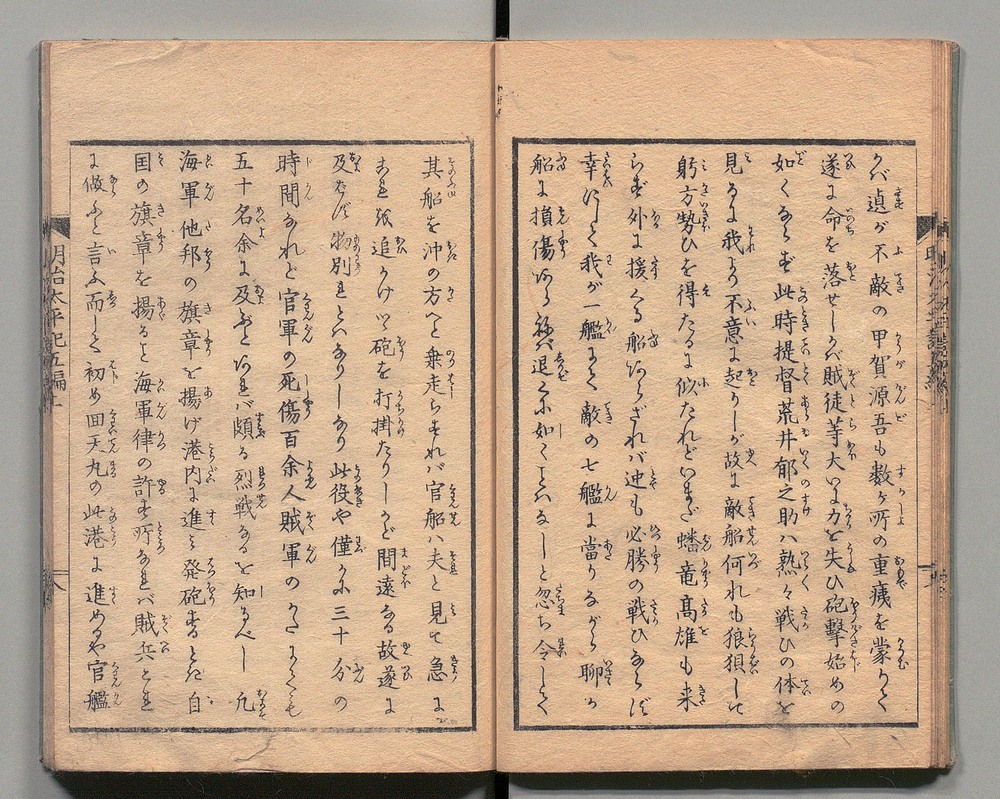 かバ遉が不敵の甲賀源吾も数ヶ所の重痍を蒙りて
遂に命を落せしかバ賊徒等大いに力を失ひ砲撃始めの
如くならず此時提督荒井郁之助ハ熟々戦ひの体を
見るに我より不意に起りしが故に敵船何れも狼狽して
躬方勢ひを得たるに似たれどいまだ蟠竜高雄も来
らず外に援くる船あらざれバ迚も必勝の戦ひならず
幸にして我が一艦にて敵の七艦に當りながら聊か
船に損傷あら
退くに如くことハなしと忽ち令して
其船を沖の方へと乗走らすれバ官船ハ夫と見て急に
追かけツヽ砲を打掛たりしかど間遠なる故遂に
及ばず物別れとハなりしなり此役や僅かに三十分の
時間なれど官軍の死傷百余人賊軍のかたにても
五十名余に及ぶとあれバ頗る烈戦なるを知るべし凡
海軍他邦の旗章を揚げ港内に進ミ発砲するときハ自
国の旗章を揚ると海軍律の許す所なれバ賊兵これ
に倣ふと言ふ而して初め回天丸の此港に進むるや官艦
明治太平記五編上
八